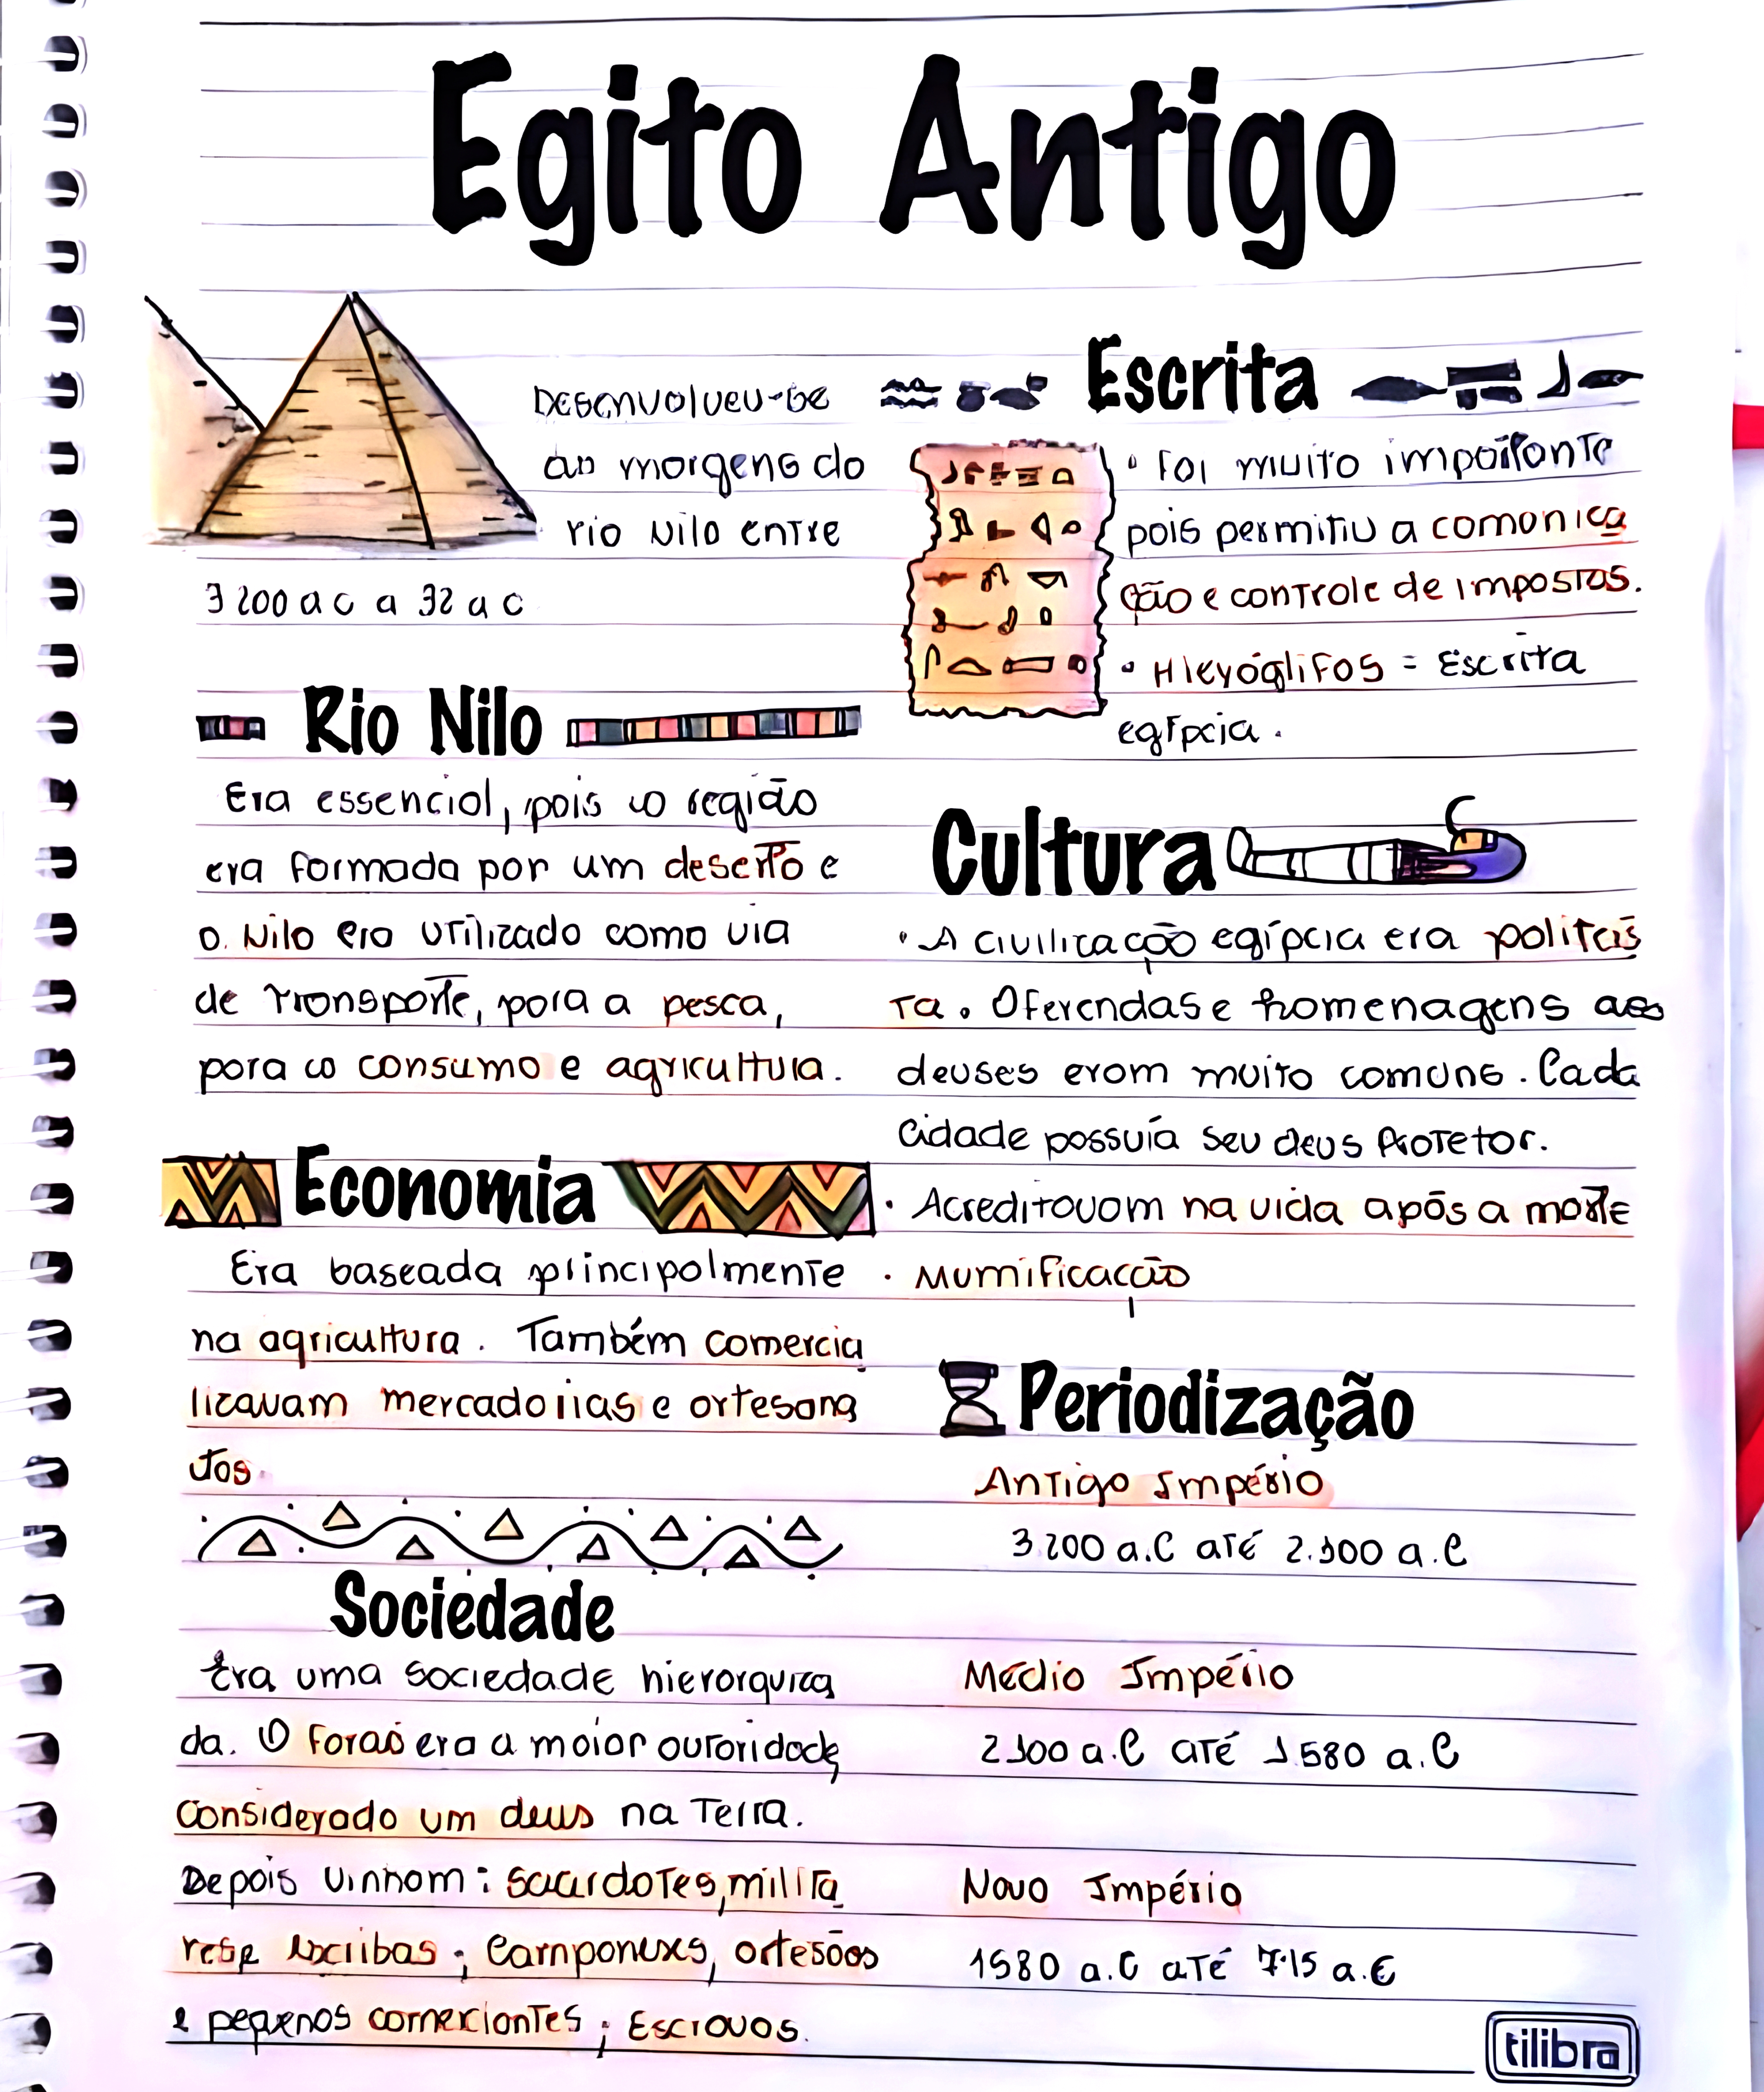 Egito Antigo
Desenvolveu-se
as margens do
rio Nilo entre
3200 a c a 32 a c
Rio Nilo
Era essencial, pois a região
era formada por um deserto e
o Nilo era utilizado como via
de transporte, para a pesca,
para o consumo e agricultura.
Economia
Era baseada principalmente
na agricultura. Também comercia
lizavam mercadorias e artesana
tos.
Sociedade
Era uma sociedade hierarquiza
da. O Faraó era a maior autoridade,
considerado um deus na Terra.
Depois vinham: sacerdotes, milita
res e escribas; Camponeses, artesãos
e pequenos comerciantes; Escravos.
Escrita
• Foi muito importante
pois permitiu a comonica
ção e controle de impostos.
• Hieróglifos = Escrita
egípcia.
Cultura
• A civilização egípcia era politeís
ta. Oferendas e homenagens aos
deuses eram muito comuns. Cada
cidade possuía seu deus Protetor.
• Acreditavam na vida após a morte
• Mumificação
Periodização
Antigo Império
3.200 a.C até 2.100 a.C
Médio Império
2100 a.C até 1.580 a.C
Novo Império
1580 a.C até 715 a.C
tilibra